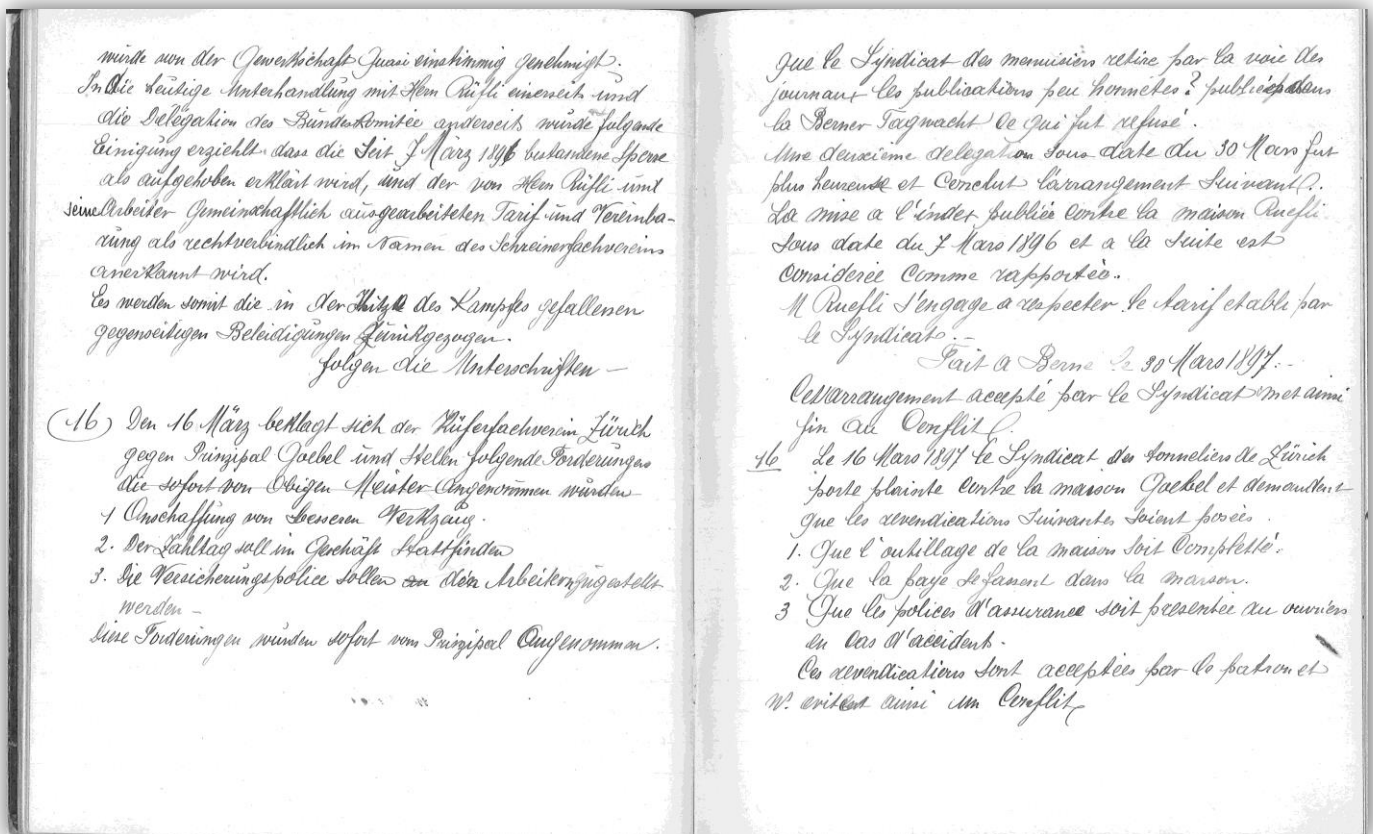 wurde von der Gewerkschaft Quasi einstimmig genehmigt.
In die heutige Unterhandlung mit Hern Rüfli einerseit und
die Delegation des Bundeskomitee anderseits wurde folgende
Einigung erziehlt dass die Seit 7 März 1896 bestandene Sperre
als aufgehoben erklärt wird, und der von Hern Rüfli und
seine Arbeiter Gemeinschaftlich ausgearbeiteten Tarif und Vereinba-
rung als rechtverbindlich im Namen des Schreinerfachvereins
anerkannt wird.
Es werden somit die in der Hitze des Kampfes gefallenen
gegenseitigen Beleidigungen Zurükgezogen.
folgen die Unterschriften —
(16) Den 16 März beklagt sich der Küferfachverein Zürich
gegen Prinzipal Goebel und Stellen folgende Forderungen
die sofort von Obigen Meister Angenommen wurden
1 Anschaffung von bessesen Werkzeug.
2. Der Zahltag soll im Geschäft Stattfinden
3. Die Versicherungspolice sollen an den Arbeitern zugestellt
werden —
Diese Forderungen wurden sofort vom Prinzipal Angenommen.
que le Syndicat des menuisiers retire par la voie des
journaux les publications peu honnetes? publiées dans
la Berner Tagwacht ce qui fut refusé.
Une deuxième delegation sous date du 30 Mars fut
plus heureuse et Conclut l'arrangement Suivant.
La mise a l'index publiée contre la maison Ruefli
Sous date du 7 Mars 1896 et a la suite est
Considerée Comme rapportée.
M Ruefli s'engage a respecter le tarif etabli par
le Syndicat. —
Fait a Berne le 30 Mars 1897. —
Cet arrangement accepté par le Syndicat met ainsi
fin au Conflit.
16 Le 16 Mars 1897 le Syndicat des tonneliers de Zürich
porte plainte contre la maison Goebel et demandent
que les revendications Suivantes soient posées.
1. Que l'outillage de la maison soit Completté.
2. Que la paye se fassent dans la maison.
3 Que les polices d'assurance soit presentée au ouvriers
en cas d'accident.
Ces revendications sont acceptées par le patron et
evitent ainsi un Conflit